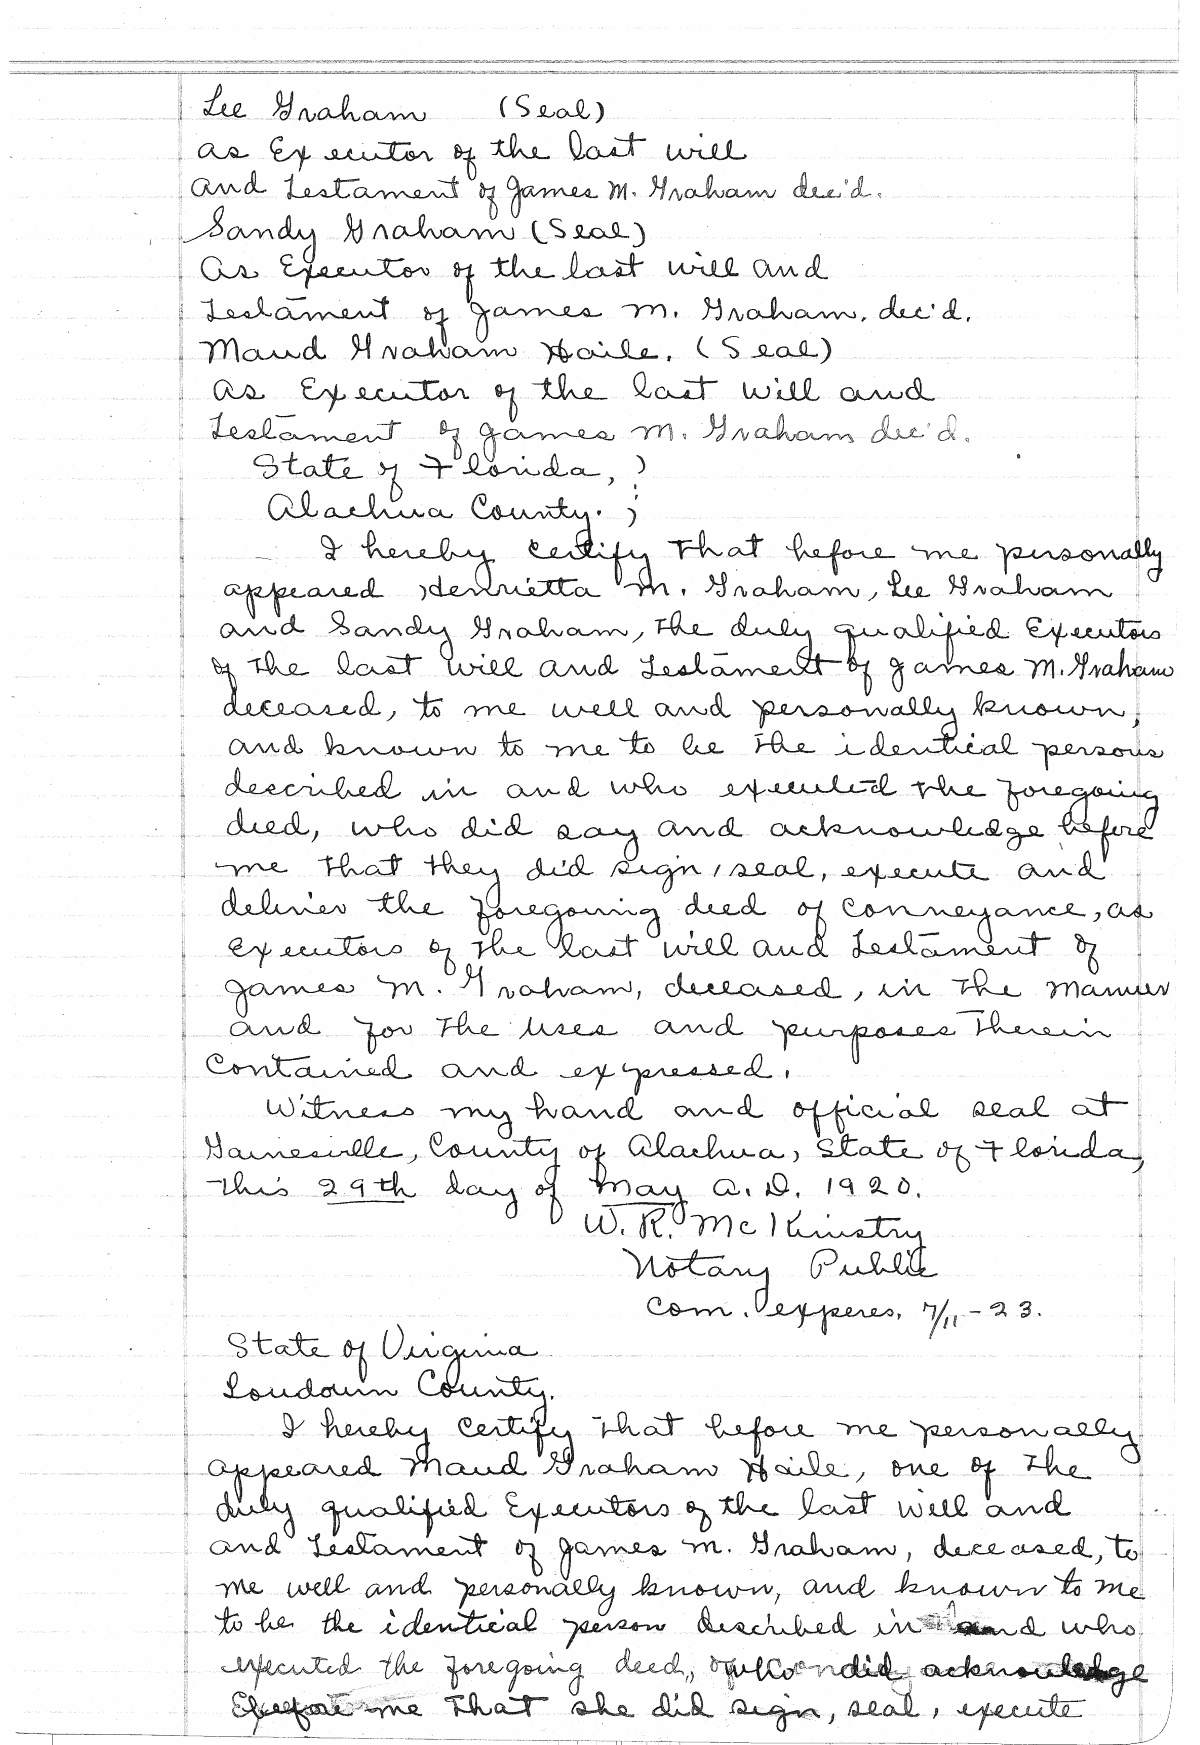 Lee Graham (Seal)
as Executor of the last will
and Testament of James M. Graham dec'd.
Sandy Graham (Seal)
As Executor of the last will and
Testament of James M. Graham, dec'd.
Maud Graham Haile. (Seal)
As Executor of the last will and
Testament of James M. Graham dec'd.
State of Florida, )
Alachua County. ;
I hereby certify that before me personally
appeared Henrietta M. Graham, Lee Graham
and Sandy Graham, the duly qualified Executors
of the last will and Testament of James M. Graham
deceased, to me well and personally known,
and known to me to be the identical persons
described in and who executed the foregoing
deed, who did say and acknowledge before
me that they did sign, seal, execute and
deliver the foregoing deed of conveyance, as
Executors of the last will and Testament of
James M. Graham, deceased, in the manner
and for the uses and purposes therein
contained and expressed.
Witness my hand and official seal at
Gainesville, County of Alachua, State of Florida,
this 29th day of May A. D. 1920.
W. R. McKinstry
Notary Public
Com. experes, 7/11-23.
State of Virginia
Loudoun County.
I hereby certify that before me personally
appeared Maud Graham Haile, one of the
duly qualified Executors of the last will and
and Testament of James M. Graham, deceased, to
me well and personally known, and known to me
to be the identical person described in and who
executed the foregoing deed, who did acknowledge
before me that she did sign, seal, execute